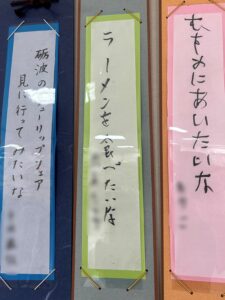 むすめにあいたいな
ラーメンを食べたいな
砺波のチューリップフェア
見に行ってみたいな